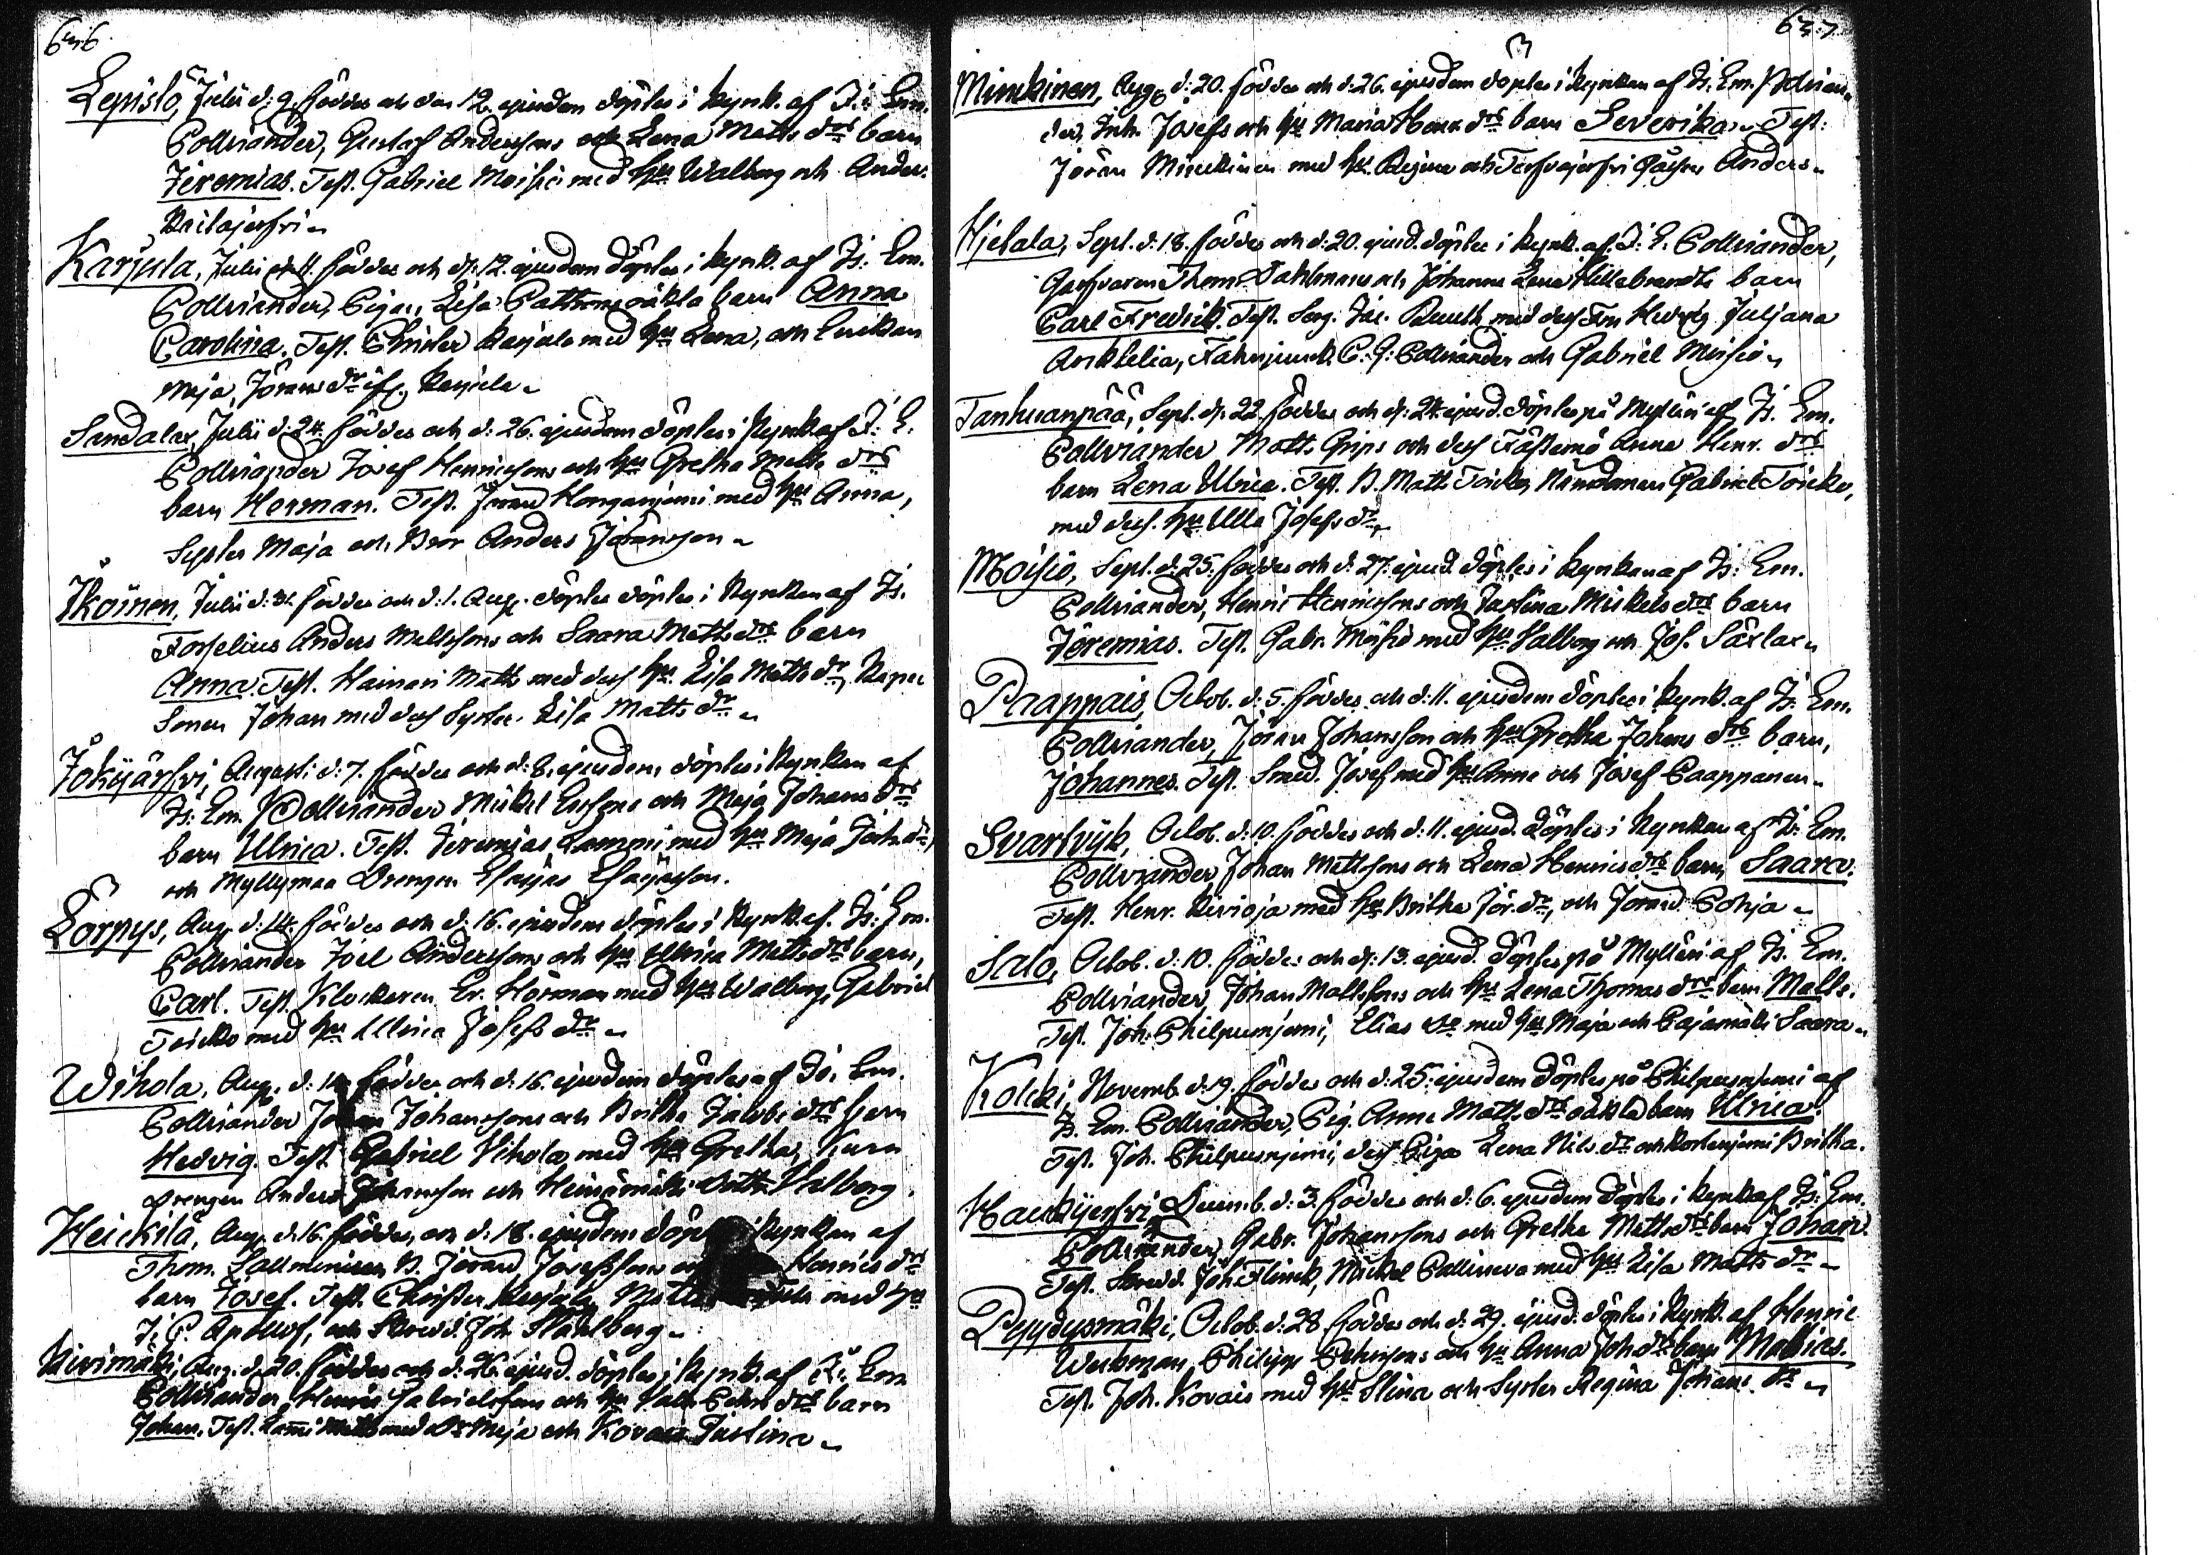 Lepistö, Julii d: 9. föddes och den 12. ejusdem döptes i kyrk. af Is: Em.
Pollviander, Gustaf Anderssons och Lena Matts drs barn
Jeremias. Test. Gabriel Moisio med hu Walborg och Anders
Karjula, Julii föddes och d: 12. ejusdem döptes i kyrk. af Is: Em.
Pollviander, Pigan, Lisa oäkta barn Anna
Carolina. Test. Christer Karjula med hu Lena, och Enkan
Maja, Jörans dr ifr. Karjula
Sandalax, Julii d: 24. föddes och d: 26. ejusdem döptes i kyrk af I: E.
Pollviander Josef Henricssons och hus Gretha Matts drs
barn Herman. Test. Jöran Konganjemi med hu Anna,
Syster Maja och Bror Anders Jöransson
Ikoinen, Julii d: 31. föddes och d: 1. Aug. döptes döptes i Kyrkan af Is.
Forselius Anders Mattssons och Saara Matts drs barn
Anna. Test. Hainari Matts med dess hu Lisa Matts dr,
Sonen Johan med dess Syster Lisa Matts dr
Jokijärfvi, Augusti d: 7. föddes och d: 8. ejusdem döptes i kyrkan af
Is: Em. Pollviander Mickel Erssons och Maja Johans drs
barn Ulrica. Test. Jeremias Lammi med hu Maja Joh. dr,
och Myllymaa Drengen Esaijas Esaijasson.
Lörpys, Aug. d: 14. föddes och d: 16. ejusdem döptes i kyrk. af Is: Em.
Pollviander Joel Anderssons och hu Ulrica Matts drs barn,
Carl. Test. Klockaren Er. Hörman med hu Walborg, Gabriel
Toicko med hu Ulrica Josefs dr
Wihola, Aug. d: 14 föddes och d: 16. ejusdem döptes af Is: Em.
Pollviander Johan Johanssons och Britha Jacobs drs barn
Hedvig. Test. Gabriel Vihola med hu Gretha,
Drengen Anders Johansson och Heinämäki Walborg
Heickilä, Aug. d: 16. föddes, och d: 18. ejusdem döptes i kyrkan af
Thom. Sallmenius B. Jöran Josefssons och Henrics drs
barn Josef. Test. Christer Karjula, Matts med hu
I. P. Apollof, och Skredd. Joh. Stählberg
Kivimäki, Aug. d: 20. föddes och d: 26. ejusd. döptes i kyrk. af Is: Em
Pollviander, Henric Gabrielssons och hu barn
Johan. Test. Lammi Matts med Maja och Kovais Justina
637
Minckinen, Aug. d: 20. föddes och d: 26. ejusdem döptes i kyrkan af Is. Em. Polvian-
der, Inh. Josefs och hu Maria Henr. drs barn Severika. Test.
Jöran Minckinen med hu Regina och Anders
Hjetala, Sept. d: 18. föddes och d: 20. ejusd. döptes i kyrk. af I: E. Pollviander,
Garfvaren Thom. Dahlmans och Johanna Lena Hillebrandts barn
Carl Fredrik. Test. Serg. Jac. Ruuth med dess Fru Hedvig Juljana
Fahnjunk. C. G: Pollviander och Gabriel Moisio
Tanhuanpää, Sept. d: 22. föddes och d: 24. ejusd. döptes på Mylläri af Is. Em.
Pollviander Matts Grips och dess Fästemö Anna Henr. drs
barn Lena Ulrica. Test. B. Matts Toicko, Nämdeman Gabriel Toicko,
med dess hu Ulla Josefs dr
Moisio, Sept. d: 25. föddes och d: 27. ejusd. döptes i kyrkan af Is: Em.
Pollviander, Henric Henricssons och Justina Mickels drs barn
Jeremias. Test. Gabr. Moisio med hu Valborg och Jos. Säxlax
Paappais, Octob. d: 5. föddes och d: 11. ejusdem döptes i kyrk. af Is: Em.
Pollviander, Jöran Johansson och hu Gretha Johans drs barn,
Johannes. Test. Smed. Josef med hu Anna och Josef Paappanen
Svartvijk, Octob. d: 10. föddes och d: 11. ejusd. döptes i kyrkan af Is: Em.
Pollviander Johan Mattssons och Lena Henrics drs barn, Saara.
Test. Henr. Kivioja med hu Britha Jör. dr, och Jöran Pohja
Salo, Octob. d: 10. föddes och d: 13. ejusd. döptes på Mylläri af Is. Em.
Pollviander, Johan Mattssons och hu Lena Thomas drs barn Matts.
Test. Joh. Philpusnjemi, Elias med hu Maja och Pajamäki Saara
Kolcki, Novemb. d: 19. föddes och d: 25. ejusdem döptes på Philpusnjemi af
Is. Em. Pollviander, Pig. Anna Matts drs oäkta barn Ulrica.
Test. Joh. Philpusnjemi, dess Piga Lena Nils dr och Britha.
Haukijerfvi, Decemb. d: 3. föddes och d: 6. ejusdem döptes i kyrk af Is: Em.
Pollviander, Gabr. Johanssons och Gretha Matts drs barn Johan.
Test. Skredd. Joh. Flinck, Mickel Callineva med hu Lisa Matts dr
Pyydysmäki, Octob. d: 28. föddes och d: 29. ejusd. döptes i kyrk. af Henric
Weckman, Philipp Petterssons och hu Anna Joh drs barn Mathias.
Test. Joh. Kovais med hu Stina och Syster Regina Johans dr